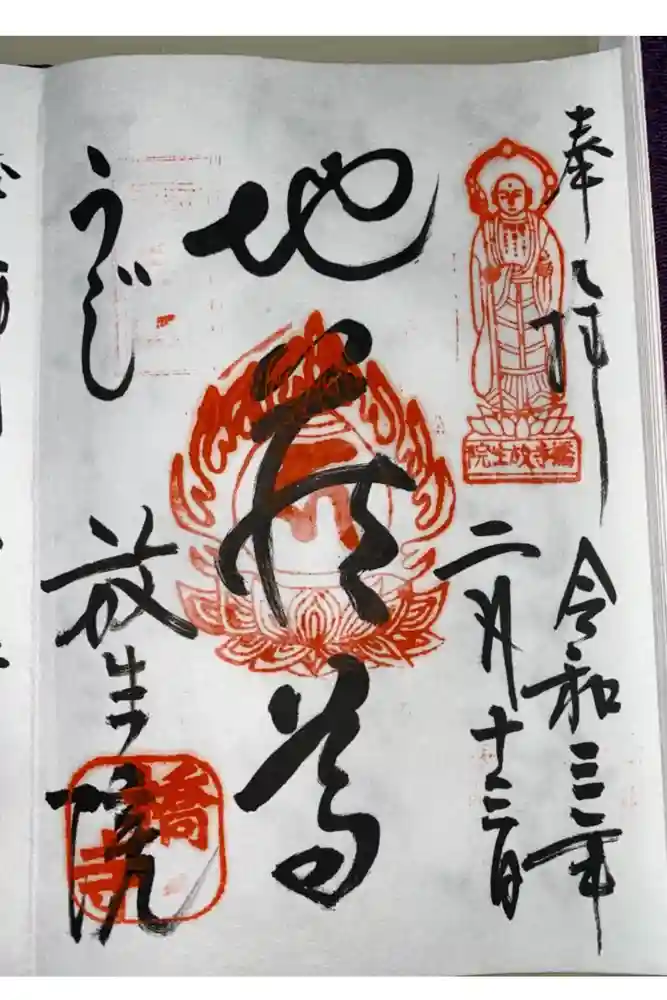 奉拝
令和三年
二月十三日
橋寺放生院
地蔵尊
うじ
放生院
橋寺